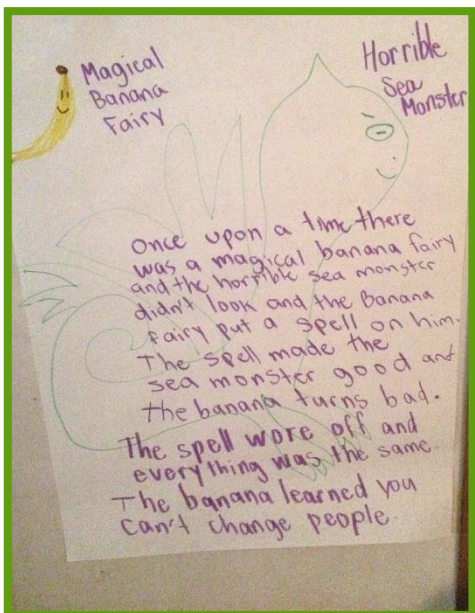 Magical
Banana
Fairy
Horrible
Sea
Monster
Once upon a time there
was a magical banana fairy
and the horrible sea monster
didn't look and the Banana
fairy put a spell on him.
The spell made the
sea monster good and
the banana turns bad.
The spell wore off and
everything was the same.
The banana learned you
can't change people.